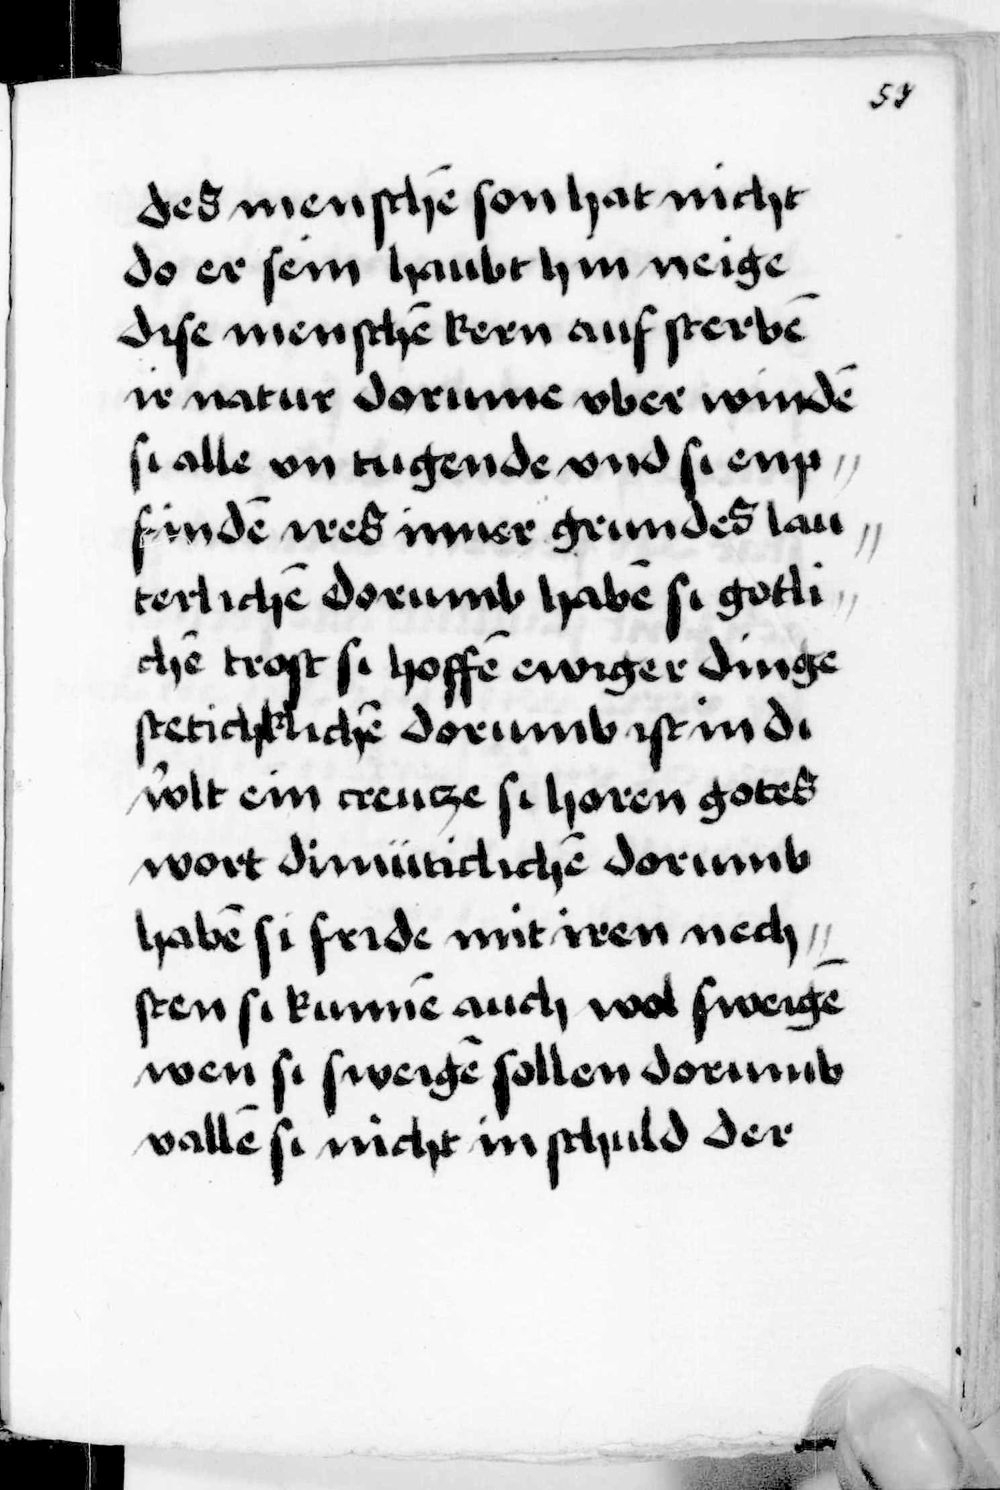 57
des menschē son hat nicht
do er sein haubt hin neige
dise menschē kern auf sterbē
ir natur dorume vber windē
si alle vn tugende vnd si enp〃
findē ires inner grundes lau〃
terlichē dorumb habē si gotli〃
chē trost si hoffē ewiger dinge
stetichklichē dorumb ist in di
w̉lt ein creucze si horen gotes
wort dimüticlichē dorumb
habē si fride mit iren nech〃
sten si kunnē auch wol sweigē
wen si sweigē sollen dorumb
vallē si nicht in schuld der